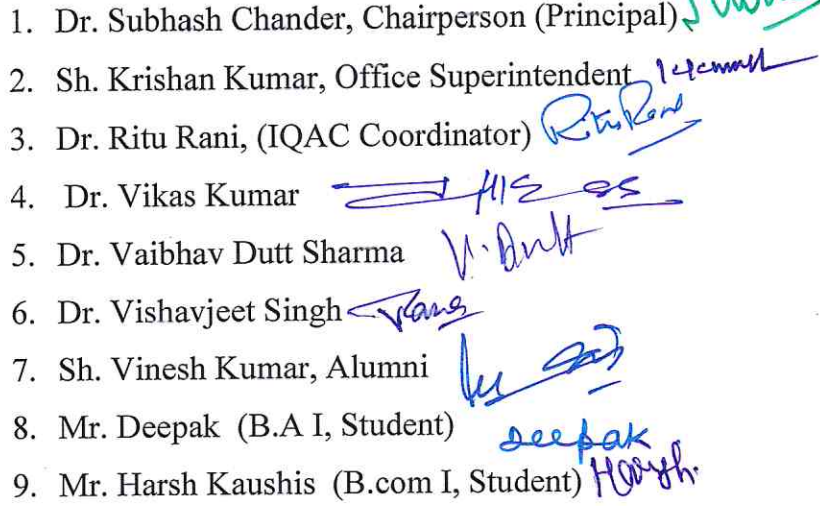 1. Dr. Subhash Chander, Chairperson (Principal)
2. Sh. Krishan Kumar, Office Superintendent
3. Dr. Ritu Rani, (IQAC Coordinator) Ritu Rani
4. Dr. Vikas Kumar
5. Dr. Vaibhav Dutt Sharma V. Dutt
6. Dr. Vishavjeet Singh
7. Sh. Vinesh Kumar, Alumni
8. Mr. Deepak (B.A I, Student) Deepak
9. Mr. Harsh Kaushis (B.com I, Student) Harsh.